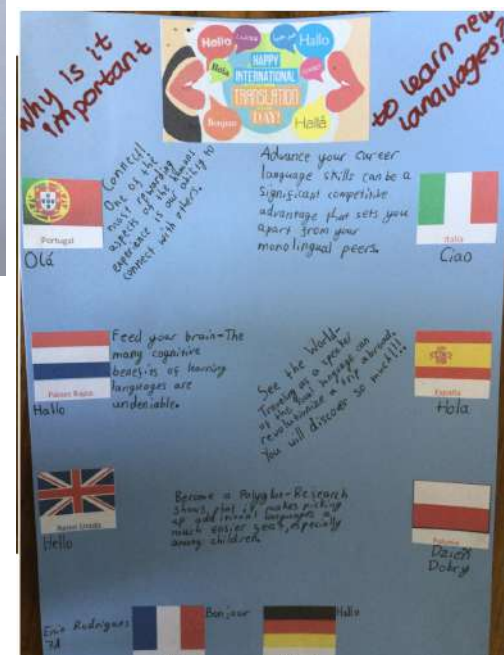 Why is it
important
to learn new
languages?
Hello
Hallo
Hola
HAPPY
INTERNATIONAL
TRANSLATION
DAY!
Bonjour
Hallå
Portugal
Olá
Connect!
One of the
most rewarding
aspects of the human
experience is our ability to
connect with others.
Advance your career
language skills can be a
significant competitive
advantage that sets you
apart from your
monolingual peers.
Italia
Ciao
Países Bajos
Hallo
Feed your brain-The
many cognitive
benefits of learning
languages are
undeniable.
See the World-
Traveling as a speaker
of the local language can
revolutionize a trip abroad.
You will discover so much!!!
España
Hola
Reino Unido
Hello
Become a Polyglot-Research
shows, that it makes picking
up additional languages a
much easier feat, especially
among children.
Polonia
Dzień
Dobry
Rodrigues
7A
Bonjour
Hallo